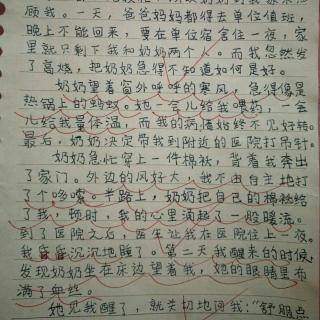 顾我。一天，爸爸妈妈都得去单位值班，
晚上不能回来，要在单位宿舍住一夜，家
里就只剩下我和奶奶两个人。而我忽然发
了高烧，把奶奶急得不知道如何是好。
奶奶望着窗外呼呼的寒风，急得像是
热锅上的蚂蚁。她一会儿给我喂药，一会
儿给我量体温，而我的病情始终不见好转。
最后，奶奶决定带我到附近的医院打吊针。
奶奶急忙穿上一件棉袄，背着我奔出
了家门。外边的风好大，我不由自主地打
了个哆嗦。半路上，奶奶把自己的棉袄给
了我，顿时，我的心里涌起了一股暖流。
到了医院之后，医生让我在医院住上一夜。
我昏昏沉沉地睡了。第二天我醒来的时候，
发现奶奶坐在床边望着我，她的眼睛里布
满了血丝。
她见我醒了，就关切地问我：“舒服点